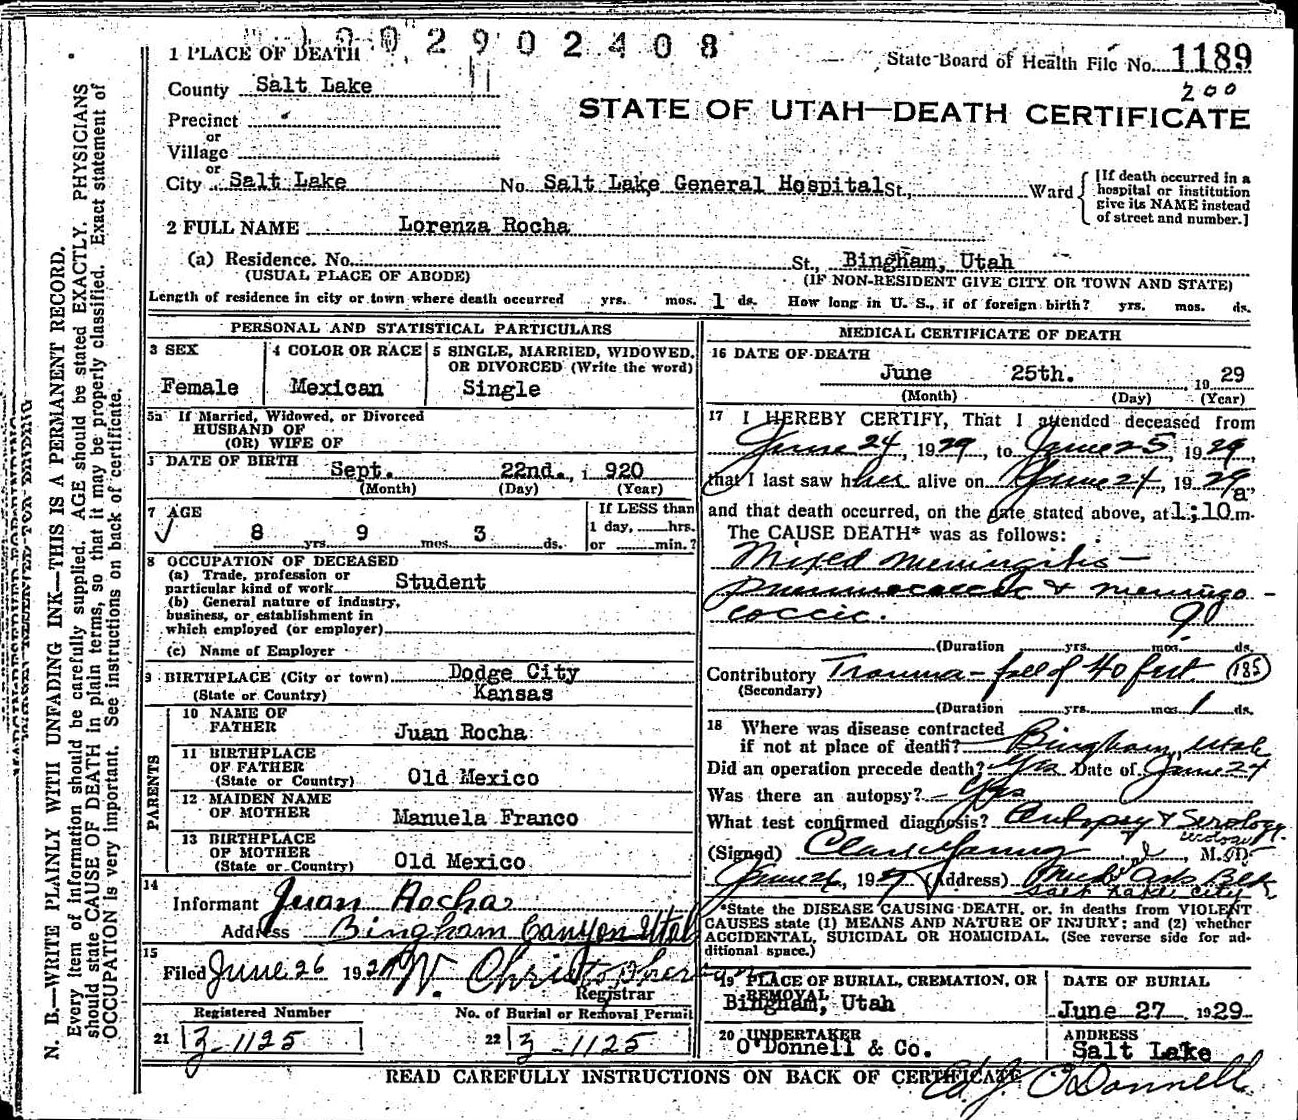 2902408
1 PLACE OF DEATH
State Board of Health File No. 1189
200
County Salt Lake
STATE OF UTAH—DEATH CERTIFICATE
Precinct
or
Village
or
City Salt Lake No. Salt Lake General Hospital St., Ward
[If death occurred in a hospital or institution give its NAME instead of street and number.]
2 FULL NAME Lorenza Rocha
(a) Residence. No. St., Bingham, Utah
(USUAL PLACE OF ABODE) (IF NON-RESIDENT GIVE CITY OR TOWN AND STATE)
Length of residence in city or town where death occurred yrs. mos. 1 ds. How long in U. S., if of foreign birth? yrs. mos. ds.
PERSONAL AND STATISTICAL PARTICULARS
3 SEX
Female
4 COLOR OR RACE
Mexican
5 SINGLE, MARRIED, WIDOWED, OR DIVORCED (Write the word)
Single
5a If Married, Widowed, or Divorced
HUSBAND OF
(OR) WIFE OF
DATE OF BIRTH Sept. 22nd., 1920
(Month) (Day) (Year)
7 AGE
8 yrs. 9 mos. 3 ds.
If LESS than
1 day, hrs.
or min.?
8 OCCUPATION OF DECEASED
(a) Trade, profession or
particular kind of work Student
(b) General nature of industry,
business, or establishment in
which employed (or employer)
(c) Name of Employer
9 BIRTHPLACE (City or town) Dodge City
(State or Country) Kansas
PARENTS
10 NAME OF
FATHER Juan Rocha
11 BIRTHPLACE
OF FATHER
(State or Country) Old Mexico
12 MAIDEN NAME
OF MOTHER Manuela Franco
13 BIRTHPLACE
OF MOTHER
(State or Country) Old Mexico
14
Informant Juan Rocha
Address Bingham Canyon Utah
15
Filed June 26 1929 W. Christopherson
Registrar
Registered Number No. of Burial or Removal Permit
21 3-1125 22 3-1125
MEDICAL CERTIFICATE OF DEATH
16 DATE OF DEATH
June 25th. 1929
(Month) (Day) (Year)
17 I HEREBY CERTIFY, That I attended deceased from
June 24, 1929, to June 25, 1929
that I last saw her alive on June 24, 1929
and that death occurred, on the date stated above, at 1;10 a m.
The CAUSE DEATH* was as follows:
Mixed Meningitis —
pneumococcic & meningo-
coccic.
(Duration yrs. mos. ds.
Contributory Trauma - fall of 40 feet 185
(Secondary)
(Duration yrs. mos. 1 ds.
18 Where was disease contracted
if not at place of death? Bingham, Utah
Did an operation precede death? Yes Date of June 24
Was there an autopsy? Yes
What test confirmed diagnosis? Autopsy & Serology
(Signed) Clark Young, M. D.
June 26, 1929 (Address) Med. Arts Bldg
Salt Lake City
*State the DISEASE CAUSING DEATH, or, in deaths from VIOLENT
CAUSES state (1) MEANS AND NATURE OF INJURY; and (2) whether
ACCIDENTAL, SUICIDAL OR HOMICIDAL. (See reverse side for ad-
ditional space.)
19 PLACE OF BURIAL, CREMATION, OR
REMOVAL
Bingham, Utah
DATE OF BURIAL
June 27 1929
20 UNDERTAKER
O'Donnell & Co.
ADDRESS
Salt Lake
READ CAREFULLY INSTRUCTIONS ON BACK OF CERTIFICATE
O'Donnell
N. B.—WRITE PLAINLY WITH UNFADING INK—THIS IS A PERMANENT RECORD.
Every item of information should be carefully supplied. AGE should be stated EXACTLY. PHYSICIANS
should state CAUSE OF DEATH in plain terms, so that it may be properly classified. Exact statement of
OCCUPATION is very important. See instructions on back of certificate.